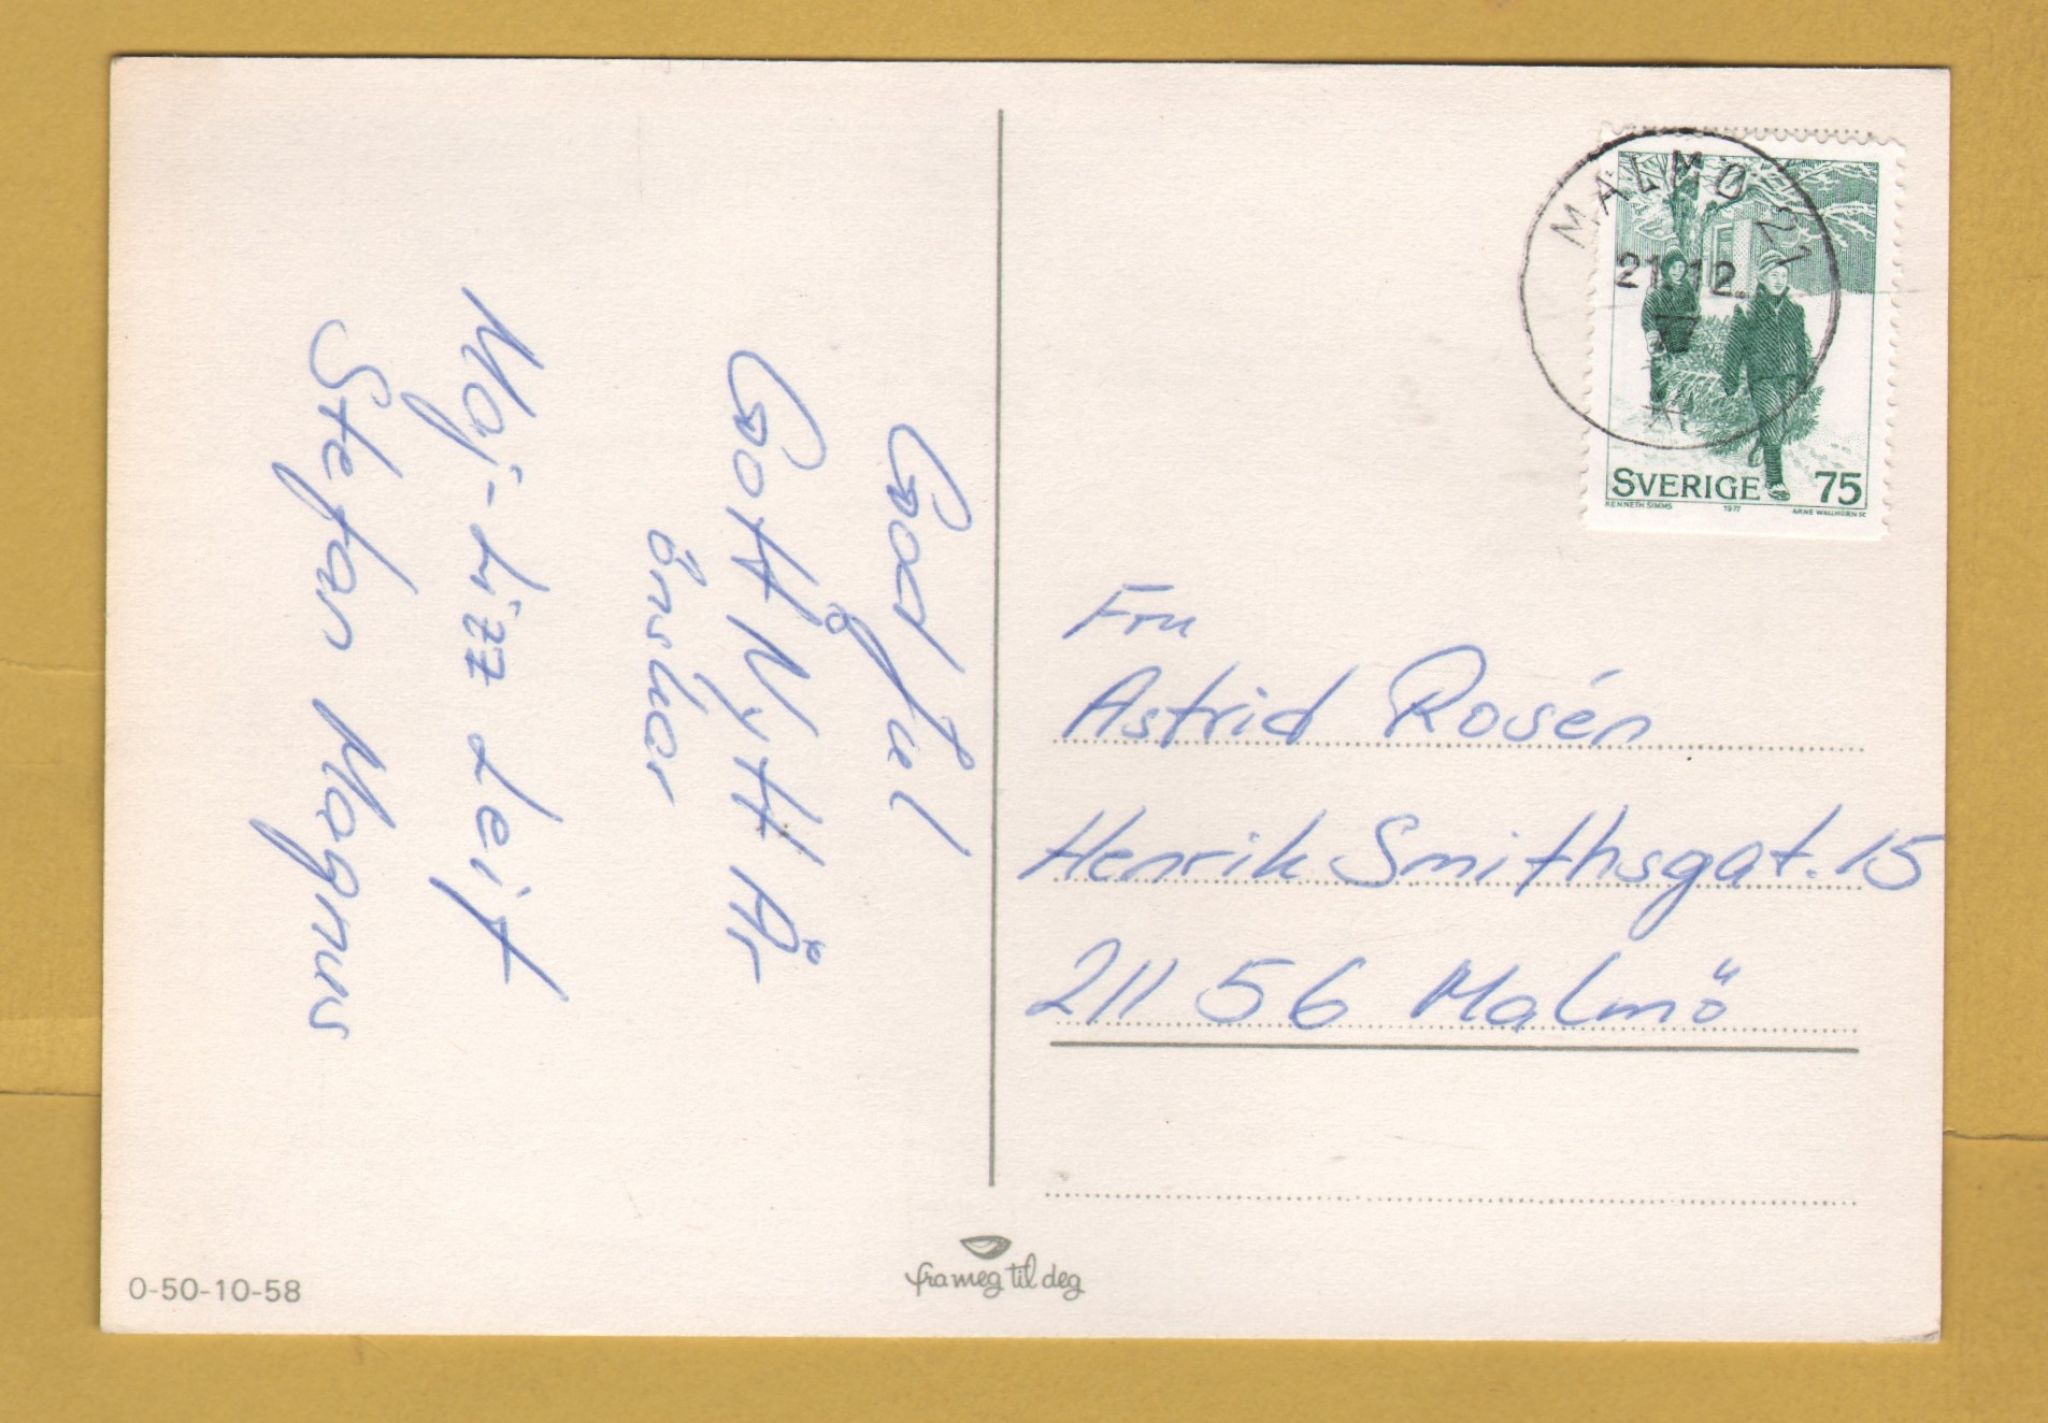 God Jul
&
Gott Nytt År
önskar
Maj-Lizz Leif
Stefan Magnus
MALMÖ 21
21.12.
77
SVERIGE 75
KENNETH SIMMS 1977 ARNE WALLHORN SC
Fru
Astrid Rosén
Henrik Smithsgat. 15
211 56 Malmö
0-50-10-58
fra meg til deg